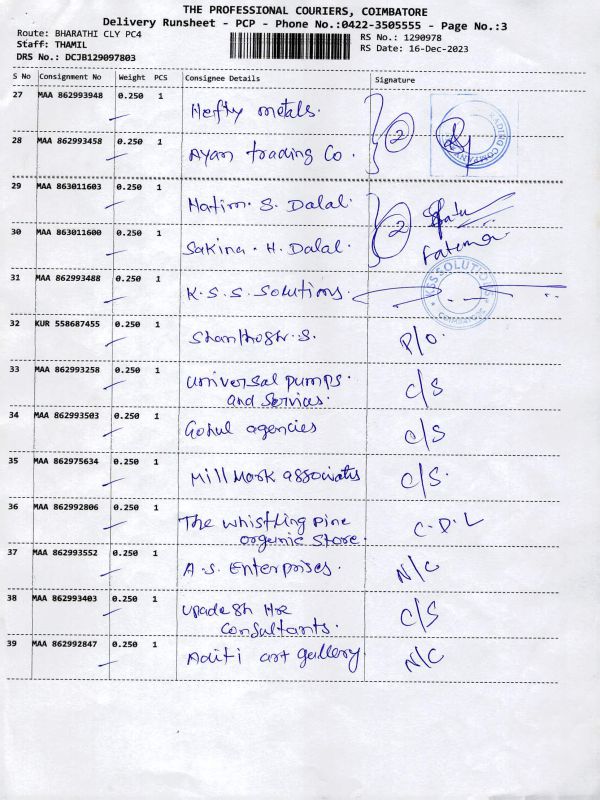 THE PROFESSIONAL COURIERS, COIMBATORE
Delivery Runsheet - PCP - Phone No.:0422-3505555 - Page No.:3
Route: BHARATHI CLY PC4 RS No.: 1290978
Staff: THAMIL RS Date: 16-Dec-2023
DRS No.: DCJB129097803
S No Consignment No Weight PCS Consignee Details Signature
27 MAA 862993948 0.250 1 Hefty metals.
28 MAA 862993458 0.250 1 Ayan trading Co. 2
TRADING COMPANY
29 MAA 863011603 0.250 1 Hatim. S. Dalal.
30 MAA 863011600 0.250 1 Sakina. H. Dalal. 2 Fatema
31 MAA 862993488 0.250 1 K.S.S. Solutions.
KSS SOLUTIONS COIMBATORE
32 KUR 558687455 0.250 1 Shanthosh. S. P/O.
33 MAA 862993258 0.250 1 universal pumps. C/S
and services.
34 MAA 862993503 0.250 1 Gokul agencies C/S
35 MAA 862975634 0.250 1 Mill Mark associates C/S.
36 MAA 862992806 0.250 1 The whistling pine C.D.L
orgenic Store.
37 MAA 862993552 0.250 1 A.S. Enterprises. N/C
38 MAA 862993403 0.250 1 upadesh Hre C/S
Consultants.
39 MAA 862992847 0.250 1 Aditi art gallery. N/C